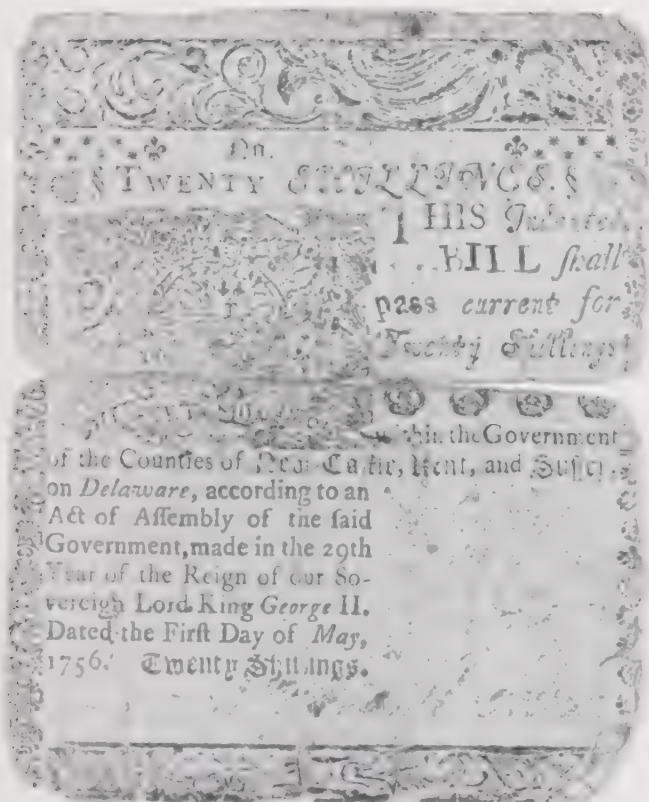 No.
§ TWENTY SHILLINGS. §
THIS Indented
BILL ſhall
paſs current for
Twenty Shillings
within the Government
of the Counties of New-Caſtle, Kent, and Suſſex
on Delaware, according to an
Act of Aſſembly of the ſaid
Government, made in the 29th
Year of the Reign of our So-
vereign Lord King George II.
Dated the Firſt Day of May,
1756. Twenty Shillings.